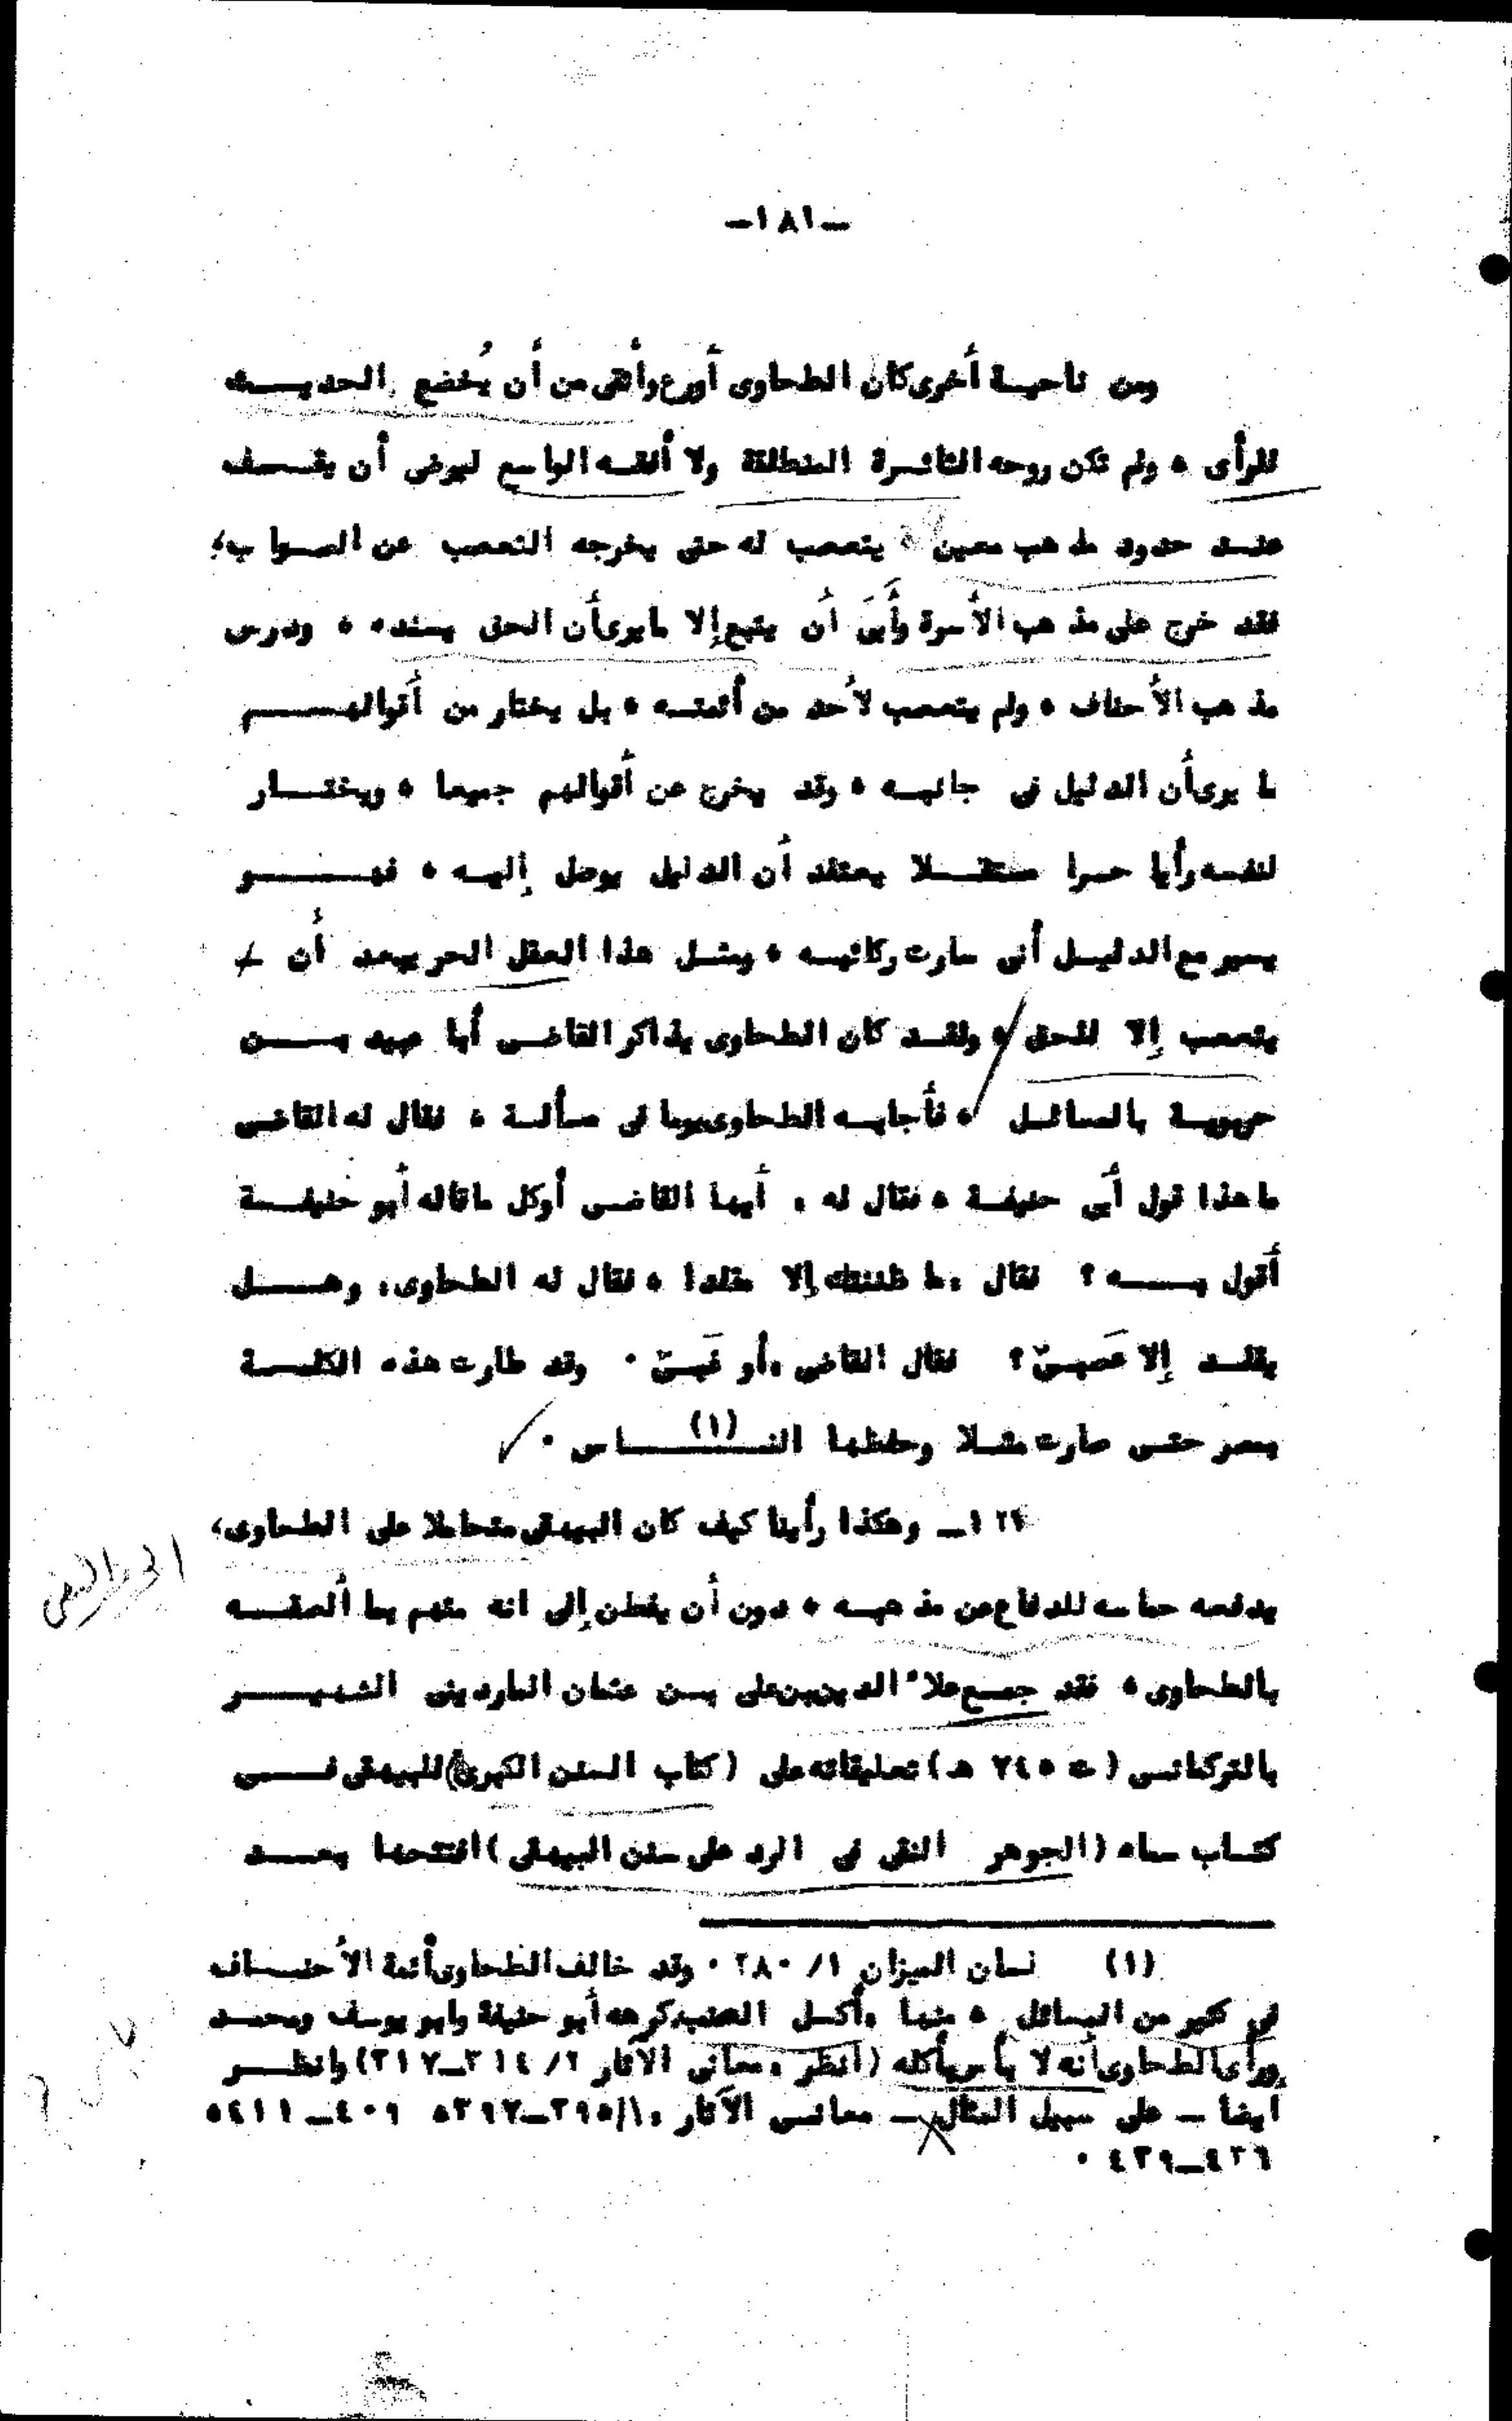 -١٨١-
ومن ناحية أخرى كان الطحاوى أورع وأتقى من أن يُخضع الحديث
للرأى ، ولم تكن روحه الثائرة المنطلقة ولا أفقه الواسع ليرضى أن يقف
عند حدود مذهب معين ، يتعصب له حتى يخرجه التعصب عن الصواب،
فقد خرج على مذهب الأسرة وأبَى أن يتبع إلا مايرى أن الحق يسنده ، ودرس
مذهب الأحناف ، ولم يتعصب لأحد من أئمته ، بل يختار من أقوالهم
ما يرى أن الدليل فى جانبه ، وقد يخرج عن أقوالهم جميعا ، ويختار
لنفسه رأيا حرا مستقلا يعتقد أن الدليل يوصل إليه ، فهو
يسير مع الدليل أنى سارت ركائبه ، ومثل هذا العقل الحر يبعد أن
يتعصب إلا للحق ، ولقد كان الطحاوى يذاكر القاضى أبا عبيد بن
حربوية بالمسائل ، فأجابه الطحاوى يوما فى مسألة ، فقال له القاضى
ما هذا قول أبى حنيفة ، فقال له . أيها القاضى أوكل ماقاله أبو حنيفة
أقول به ؟ فقال .ما ظننتك إلا مقلدا ، فقال له الطحاوى، وهل
يقلد إلا عَصبىّ ؟ فقال القاضى .أو غَبىّ . وقد طارت هذه الكلمة
بمصر حتى صارت مثلا وحفظها الناس (١) .
١٢٤ـ وهكذا رأينا كيف كان البيهقى متحاملا على الطحاوى،
يدفعه حماسه للدفاع عن مذهبه ، دون أن يفطن إلى انه متهم بما ألصقه
بالطحاوى ، فقد جمع علاء الدين بن على بن عثمان الماردينى الشهير
بالتركمانى (ت ٧٤٥ هـ) تعليقاته على (كتاب السنن الكبرى) للبيهقى فى
كتاب سماه (الجوهر النقى فى الرد على سنن البيهقى) افتتحها بعد
الجوهر النقى
(١) لسان الميزان ١/ ٢٨٠ . وقد خالف الطحاوى أئمة الأحناف
فى كثير من المسائل ، منها .أكل الضب كرهه أبو حنيفة وابو يوسف ومحمد
ورأى الطحاوى أنه لا بأس بأكله (انظر .معانى الآثار ٢/ ٣١٤ـ٣١٧) وانظر
أيضا - على سبيل المثال - معانى الآثار .١/ ٣٩٥ـ٣٩٧، ٤٠٩ـ٤١١،
٤٣٦ـ٤٣٩ .